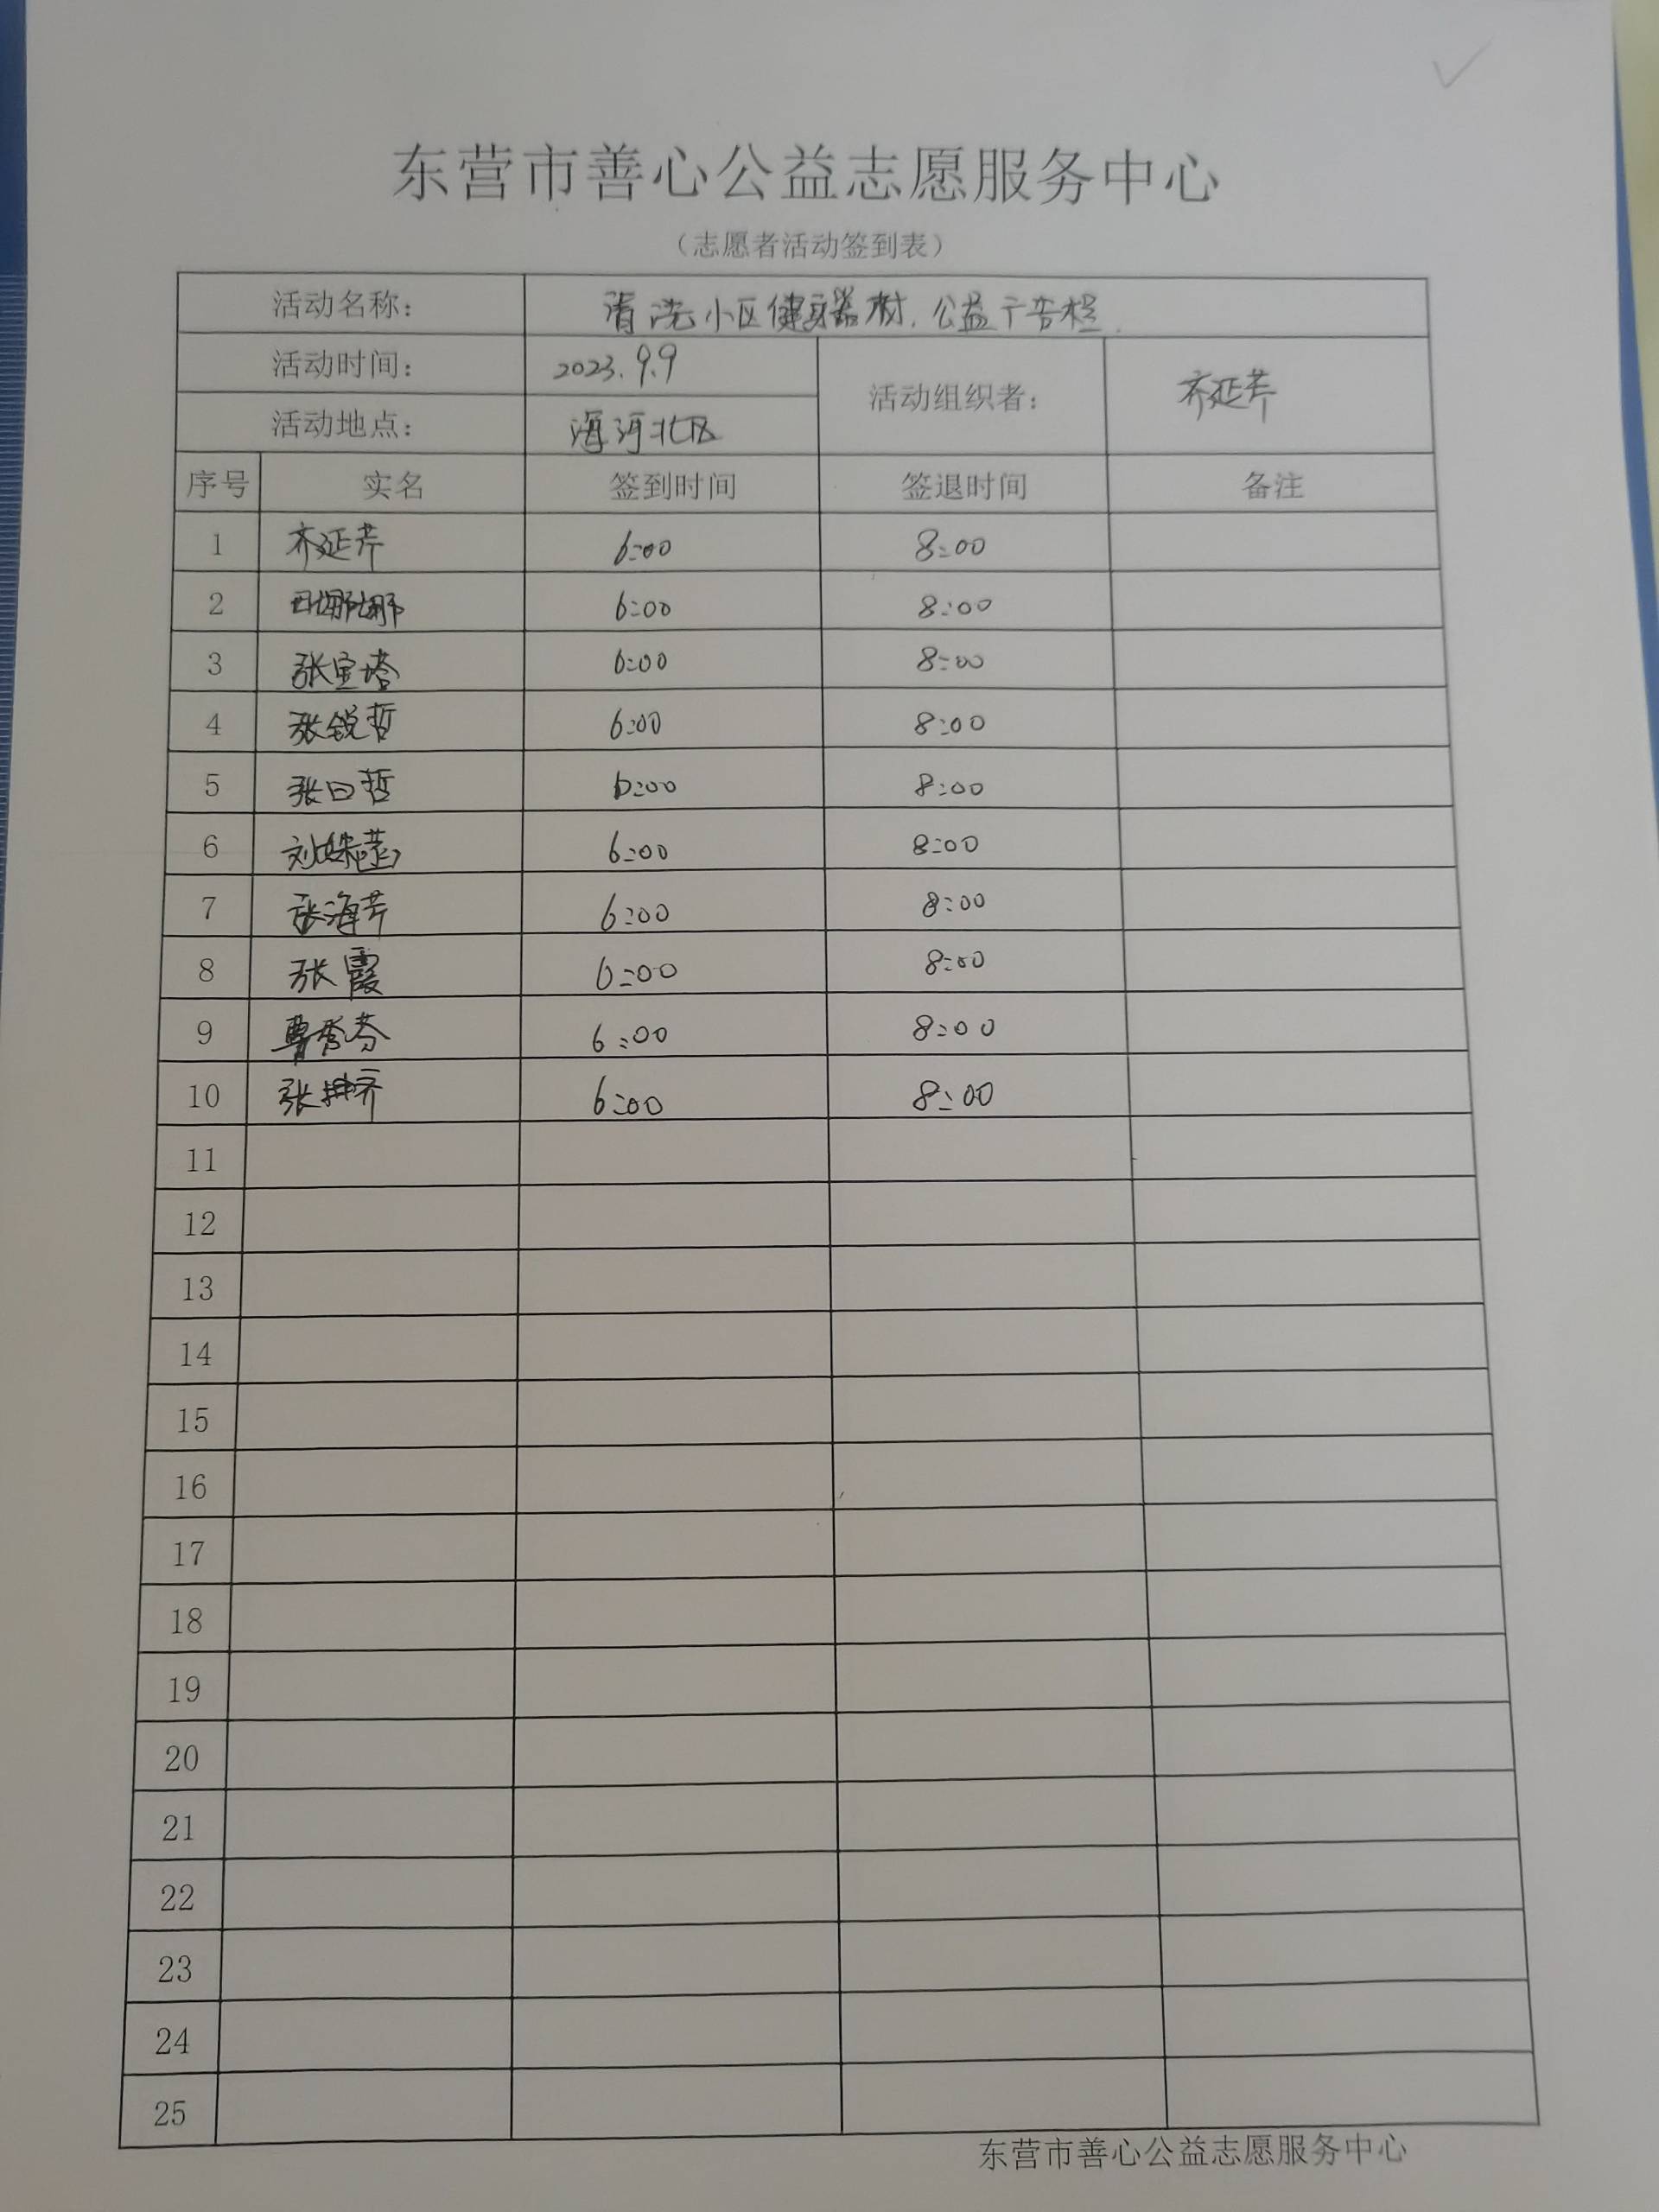 东营市善心公益志愿服务中心
（志愿者活动签到表）
活动名称： 清洗小区健身器材.公益广告栏.
活动时间： 2023.9.9 活动组织者： 齐延芹
活动地点： 海河北区
序号 实名 签到时间 签退时间 备注
1 齐延芹 6:00 8:00
2 田娜娜 6:00 8:00
3 张宝塔 6:00 8:00
4 张锐哲 6:00 8:00
5 张曰哲 6:00 8:00
6 6:00 8:00
7 张海芹 6:00 8:00
8 张霞 6:00 8:00
9 曹秀芬 6:00 8:00
10 6:00 8:00
11
12
13
14
15
16
17
18
19
20
21
22
23
24
25
东营市善心公益志愿服务中心